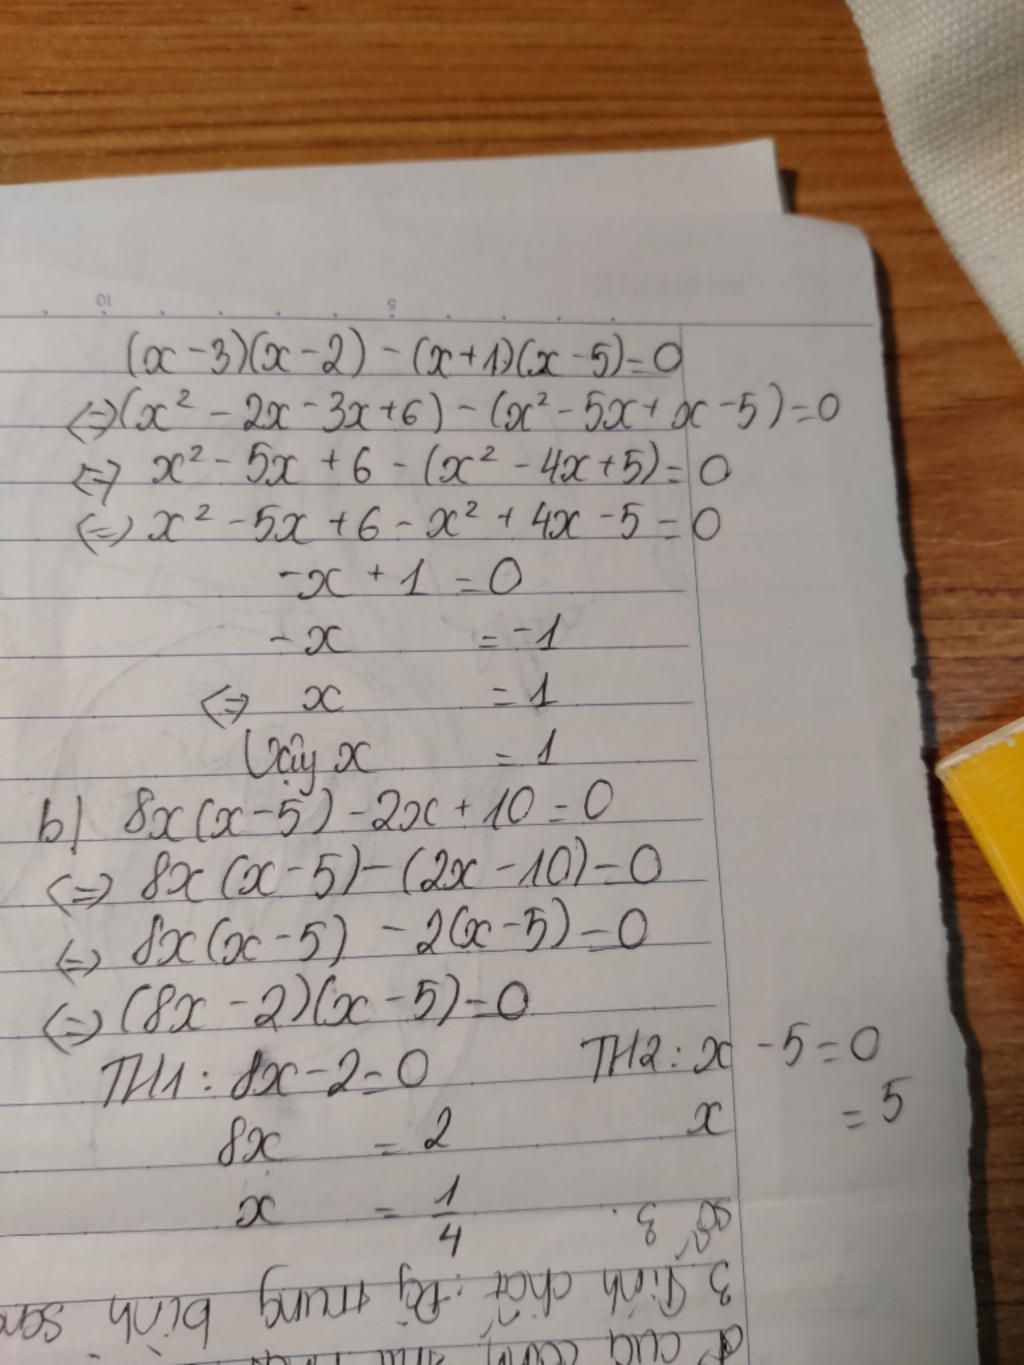 (x - 3)(x - 2) - (x + 1)(x - 5) = 0
<=> (x² - 2x - 3x + 6) - (x² - 5x + x - 5) = 0
<=> x² - 5x + 6 - (x² - 4x + 5) = 0
<=> x² - 5x + 6 - x² + 4x - 5 = 0
-x + 1 = 0
-x = -1
<=> x = 1
Vậy x = 1
b) 8x(x - 5) - 2x + 10 = 0
<=> 8x(x - 5) - (2x - 10) = 0
<=> 8x(x - 5) - 2(x - 5) = 0
<=> (8x - 2)(x - 5) = 0
TH1: 8x - 2 = 0 TH2: x - 5 = 0
8x = 2 x = 5
x = 1/4
số 3.
3. Tính chất: trung bình
của
10 5